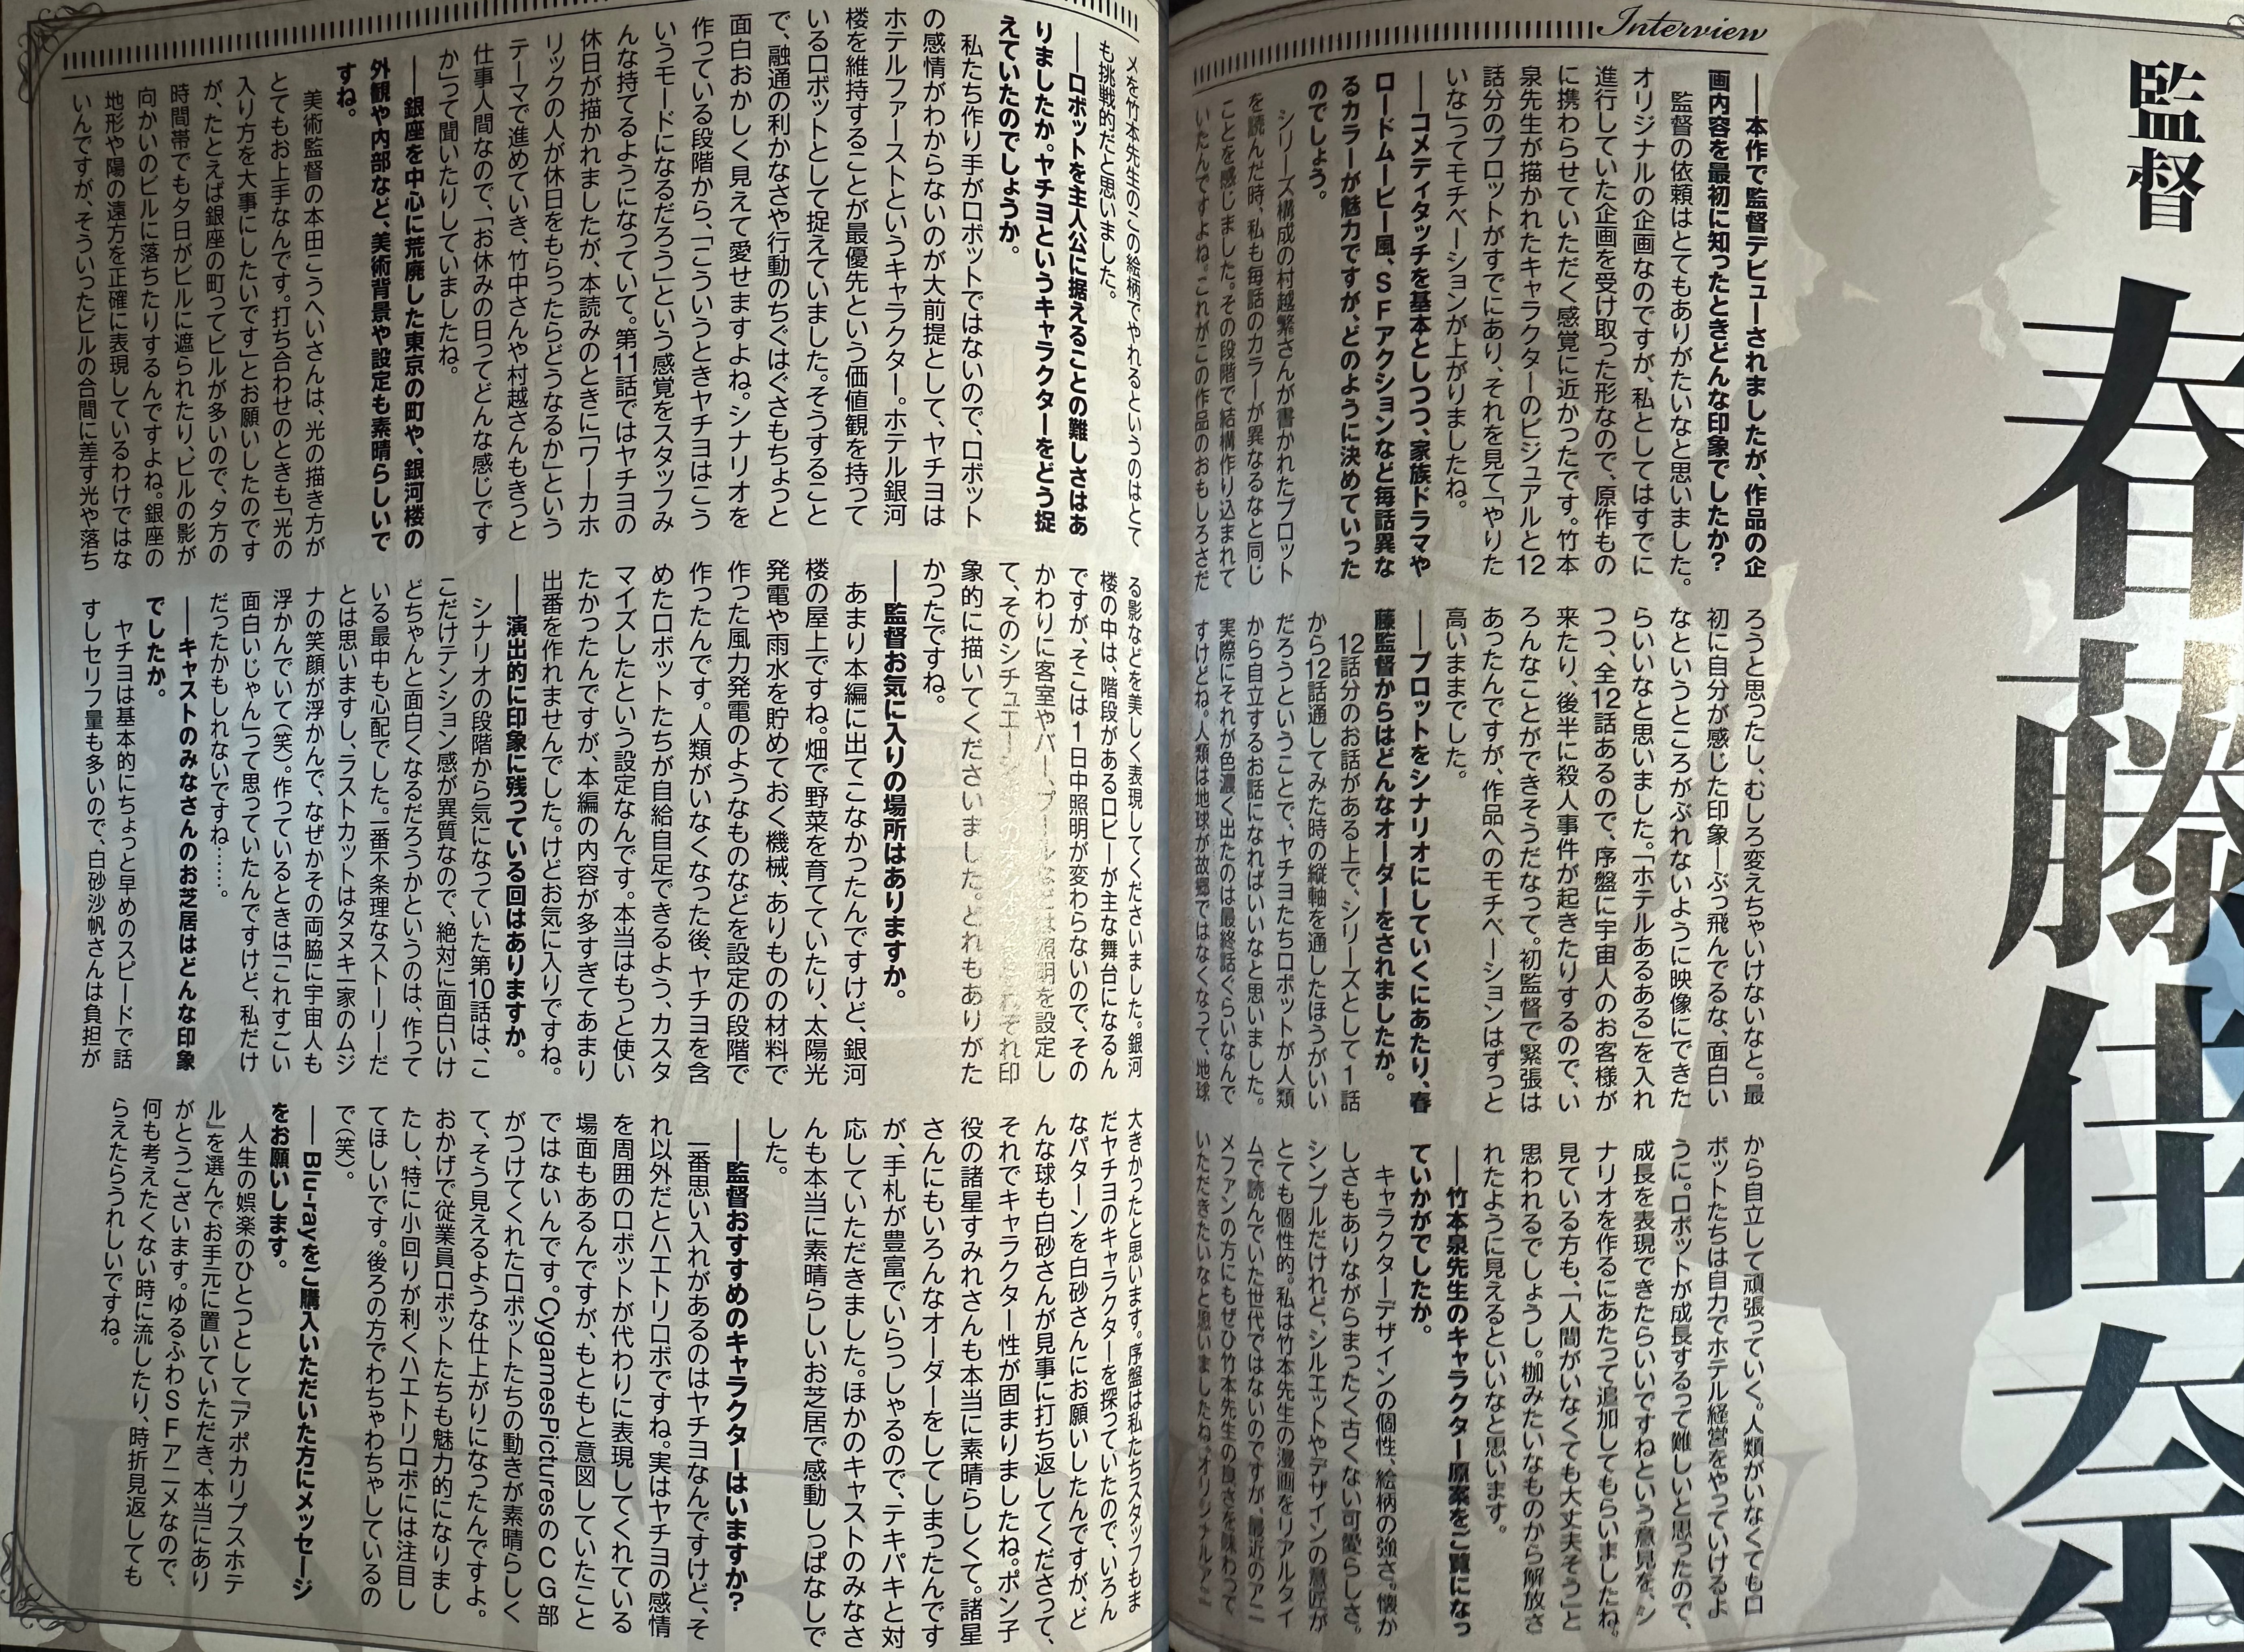 Interview
監督
春藤佳奈
――本作で監督デビューされましたが、作品の企
画内容を最初に知ったときどんな印象でしたか?
監督の依頼はとてもありがたいなと思いました。
オリジナルの企画なのですが、私としてはすでに
進行していた企画を受け取った形なので、原作もの
に携わらせていただく感覚に近かったです。竹本
泉先生が描かれたキャラクターのビジュアルと12
話分のプロットがすでにあり、それを見て「やりた
いな」ってモチベーションが上がりましたね。
――コメディタッチを基本としつつ、家族ドラマや
ロードムービー風、SFアクションなど毎話異な
るカラーが魅力ですが、どのように決めていった
のでしょう。
シリーズ構成の村越繁さんが書かれたプロット
を読んだ時、私も毎話のカラーが異なるなと同じ
ことを感じました。その段階で結構作り込まれて
いたんですよね。これがこの作品のおもしろさだ
ろうと思ったし、むしろ変えちゃいけないなと。最
初に自分が感じた印象―ぶっ飛んでるな、面白い
なというところがぶれないように映像にできた
らいいなと思いました。「ホテルあるある」を入れ
つつ、全12話あるので、序盤に宇宙人のお客様が
来たり、後半に殺人事件が起きたりするので、い
ろんなことができそうだなって。初監督で緊張は
あったんですが、作品へのモチベーションはずっと
高いままでした。
――プロットをシナリオにしていくにあたり、春
藤監督からはどんなオーダーをされましたか。
12話分のお話がある上で、シリーズとして1話
から12話通してみた時の縦軸を通したほうがいい
だろうということで、ヤチヨたちロボットが人類
から自立するお話になればいいなと思いました。
実際にそれが色濃く出たのは最終話ぐらいなんで
すけどね。人類は地球が故郷ではなくなって、地球
から自立して頑張っていく。人類がいなくてもロ
ボットたちは自力でホテル経営をやっていけるよ
うに。ロボットが成長するって難しいと思ったので、
成長を表現できたらいいですねという意見を、シ
ナリオを作るにあたって追加してもらいましたね。
見ている方も、「人間がいなくても大丈夫そう」と
思われるでしょうし。枷みたいなものから解放さ
れたように見えるといいなと思います。
――竹本泉先生のキャラクター原案をご覧になっ
ていかがでしたか。
キャラクターデザインの個性、絵柄の強さ。懐か
しさもありながらまったく古くない可愛らしさ。
シンプルだけれど、シルエットやデザインの意匠が
とても個性的。私は竹本先生の漫画をリアルタイ
ムで読んでいた世代ではないのですが、最近のアニ
メファンの方にもぜひ竹本先生の良さを味わって
いただきたいなと思いましたね。オリジナルアニ
メを竹本先生のこの絵柄でやれるというのはとて
も挑戦的だと思いました。
――ロボットを主人公に据えることの難しさはあ
りましたか。ヤチヨというキャラクターをどう捉
えていたのでしょうか。
私たち作り手がロボットではないので、ロボット
の感情がわからないのが大前提として、ヤチヨは
ホテルファーストというキャラクター。ホテル銀河
楼を維持することが最優先という価値観を持って
いるロボットとして捉えていました。そうすること
で、融通の利かなさや行動のちぐはぐさもちょっと
面白おかしく見えて愛せますよね。シナリオを
作っている段階から、「こういうときヤチヨはこう
いうモードになるだろう」という感覚をスタッフみ
んな持てるようになっていて。第11話ではヤチヨの
休日が描かれましたが、本読みのときに「ワーカホ
リックの人が休日をもらったらどうなるか」という
テーマで進めていき、竹中さんや村越さんもきっと
仕事人間なので、「お休みの日ってどんな感じです
か」って聞いたりしていましたね。
――銀座を中心に荒廃した東京の町や、銀河楼の
外観や内部など、美術背景や設定も素晴らしいで
すね。
美術監督の本田こうへいさんは、光の描き方が
とてもお上手なんです。打ち合わせのときも「光の
入り方を大事にしたいです」とお願いしたのです
が、たとえば銀座の町ってビルが多いので、夕方の
時間帯でも夕日がビルに遮られたり、ビルの影が
向かいのビルに落ちたりするんですよね。銀座の
地形や陽の遠方を正確に表現しているわけではな
いんですが、そういったビルの合間に差す光や落ち
る影などを美しく表現してくださいました。銀河
楼の中は、階段があるロビーが主な舞台になるん
ですが、そこは1日中照明が変わらないので、その
かわりに客室やバー、プールなどは照明を設定し
て、そのシチュエーションの それぞれ印
象的に描いてくださいました。どれもありがた
かったですね。
――監督お気に入りの場所はありますか。
あまり本編に出てこなかったんですけど、銀河
楼の屋上ですね。畑で野菜を育てていたり、太陽光
発電や雨水を貯めておく機械、ありものの材料で
作った風力発電のようなものなどを設定の段階で
作ったんです。人類がいなくなった後、ヤチヨを含
めたロボットたちが自給自足できるよう、カスタ
マイズしたという設定なんです。本当はもっと使い
たかったんですが、本編の内容が多すぎてあまり
出番を作れませんでした。けどお気に入りですね。
――演出的に印象に残っている回はありますか。
シナリオの段階から気になっていた第10話は、こ
こだけテンション感が異質なので、絶対に面白いけ
どちゃんと面白くなるだろうかというのは、作って
いる最中も心配でした。一番不条理なストーリーだ
とは思いますし、ラストカットはタヌキ一家のムジ
ナの笑顔が浮かんで、なぜかその両脇に宇宙人も
浮かんでいて(笑)。作っているときは「これすごい
面白いじゃん」って思っていたんですけど、私だけ
だったかもしれないですね……。
――キャストのみなさんのお芝居はどんな印象
でしたか。
ヤチヨは基本的にちょっと早めのスピードで話
すしセリフ量も多いので、白砂沙帆さんは負担が
大きかったと思います。序盤は私たちスタッフもま
だヤチヨのキャラクターを探っていたので、いろん
なパターンを白砂さんにお願いしたんですが、ど
んな球も白砂さんが見事に打ち返してくださって、
それでキャラクター性が固まりましたね。ポン子
役の諸星すみれさんも本当に素晴らしくて。諸星
さんにもいろんなオーダーをしてしまったんです
が、手札が豊富でいらっしゃるので、テキパキと対
応していただきました。ほかのキャストのみなさ
んも本当に素晴らしいお芝居で感動しっぱなしで
した。
――監督おすすめのキャラクターはいますか?
一番思い入れがあるのはヤチヨなんですけど、そ
れ以外だとハエトリロボですね。実はヤチヨの感情
を周囲のロボットが代わりに表現してくれている
場面もあるんですが、もともと意図していたこと
ではないんです。CygamesPicturesのCG部
がつけてくれたロボットたちの動きが素晴らしく
て、そう見えるような仕上がりになったんですよ。
おかげで従業員ロボットたちも魅力的になりまし
たし、特に小回りが利くハエトリロボには注目し
てほしいです。後ろの方でわちゃわちゃしているの
で(笑)。
――Blu-rayをご購入いただいた方にメッセージ
をお願いします。
人生の娯楽のひとつとして『アポカリプスホテ
ル』を選んでお手元に置いていただき、本当にあり
がとうございます。ゆるふわSFアニメなので、
何も考えたくない時に流したり、時折見返しても
らえたらうれしいですね。